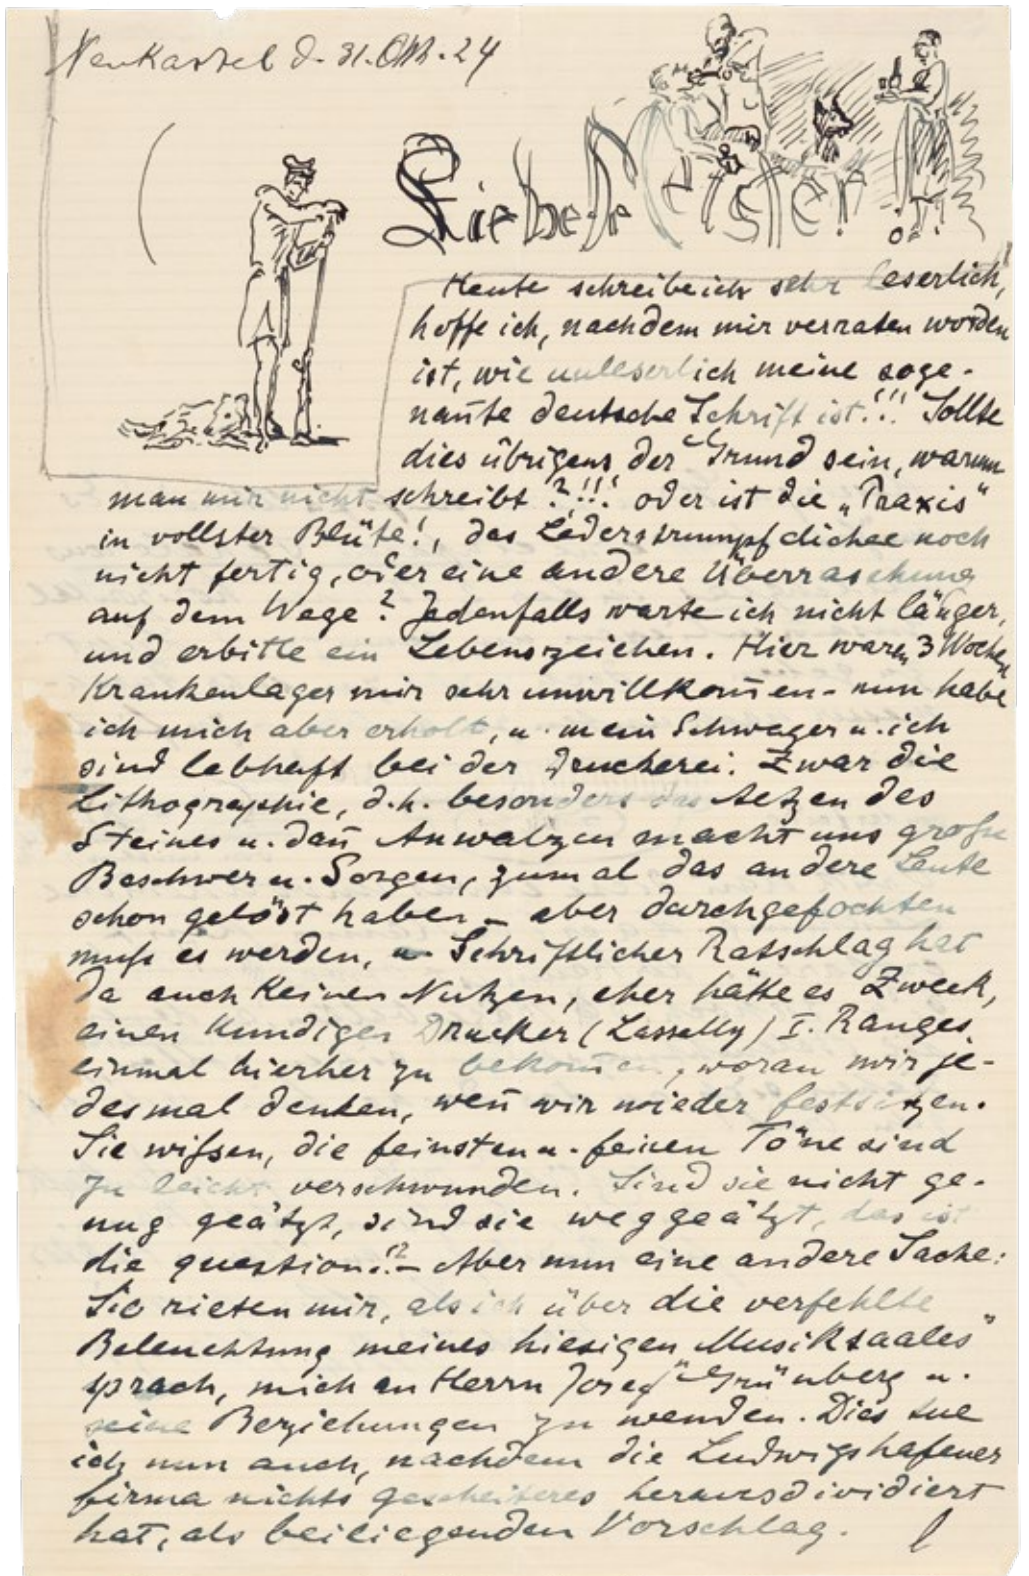 Neukastel d. 31. Okt. 24
Liebe Meister!
Heute schreibe ich sehr leserlich,
hoffe ich, nachdem mir verraten worden
ist, wie unleserlich meine soge-
nan̄te deutsche Schrift ist!!! Sollte
dies übrigens der Grund sein, warum
man mir nicht schreibt?!!! oder ist die „Praxis"
in vollster Blüte!, das Lederstrumpfclichee noch
nicht fertig, oder eine andere Überraschung
auf dem Wege? Jedenfalls warte ich nicht länger,
und erbitte ein Lebenszeichen. Hier waren 3 Wochen
Krankenlager mir sehr unwillkom̄en - nun habe
ich mich aber erholt, u. mein Schwager u. ich
sind lebhaft bei der Druckerei. Zwar die
Lithographie, d.h. besonders das Aetzen des
Steines u. dan̄ Anwalzen macht uns große
Beschwer u. Sorgen, zumal das andere Leute
schon gelöst haben - aber durchgefochten
muß es werden, u. Schriftlicher Ratschlag hat
da auch keinen Nutzen, eher hätte es Zweck,
einen kundigen Drucker (Lassally) I. Ranges
einmal hierher zu bekom̄en, woran wir je-
desmal denken, wen̄ wir wieder festsitzen.
Sie wißen, die feinsten u. feinen Töne sind
zu leicht verschwunden. Sind sie nicht ge-
nug geätzt, sind sie weggeätzt, das ist
die question!? - Aber nun eine andere Sache:
Sie rieten mir, als ich über die verfehlte
Beleuchtung meines hiesigen „Musiksaales"
sprach, mich an Herrn Josef Grünberg u.
seine Beziehungen zu wenden. Dies tue
ich nun auch, nachdem die Ludwigshafener
firma nichts gescheiteres herausdividiert
hat, als beiliegenden Vorschlag.